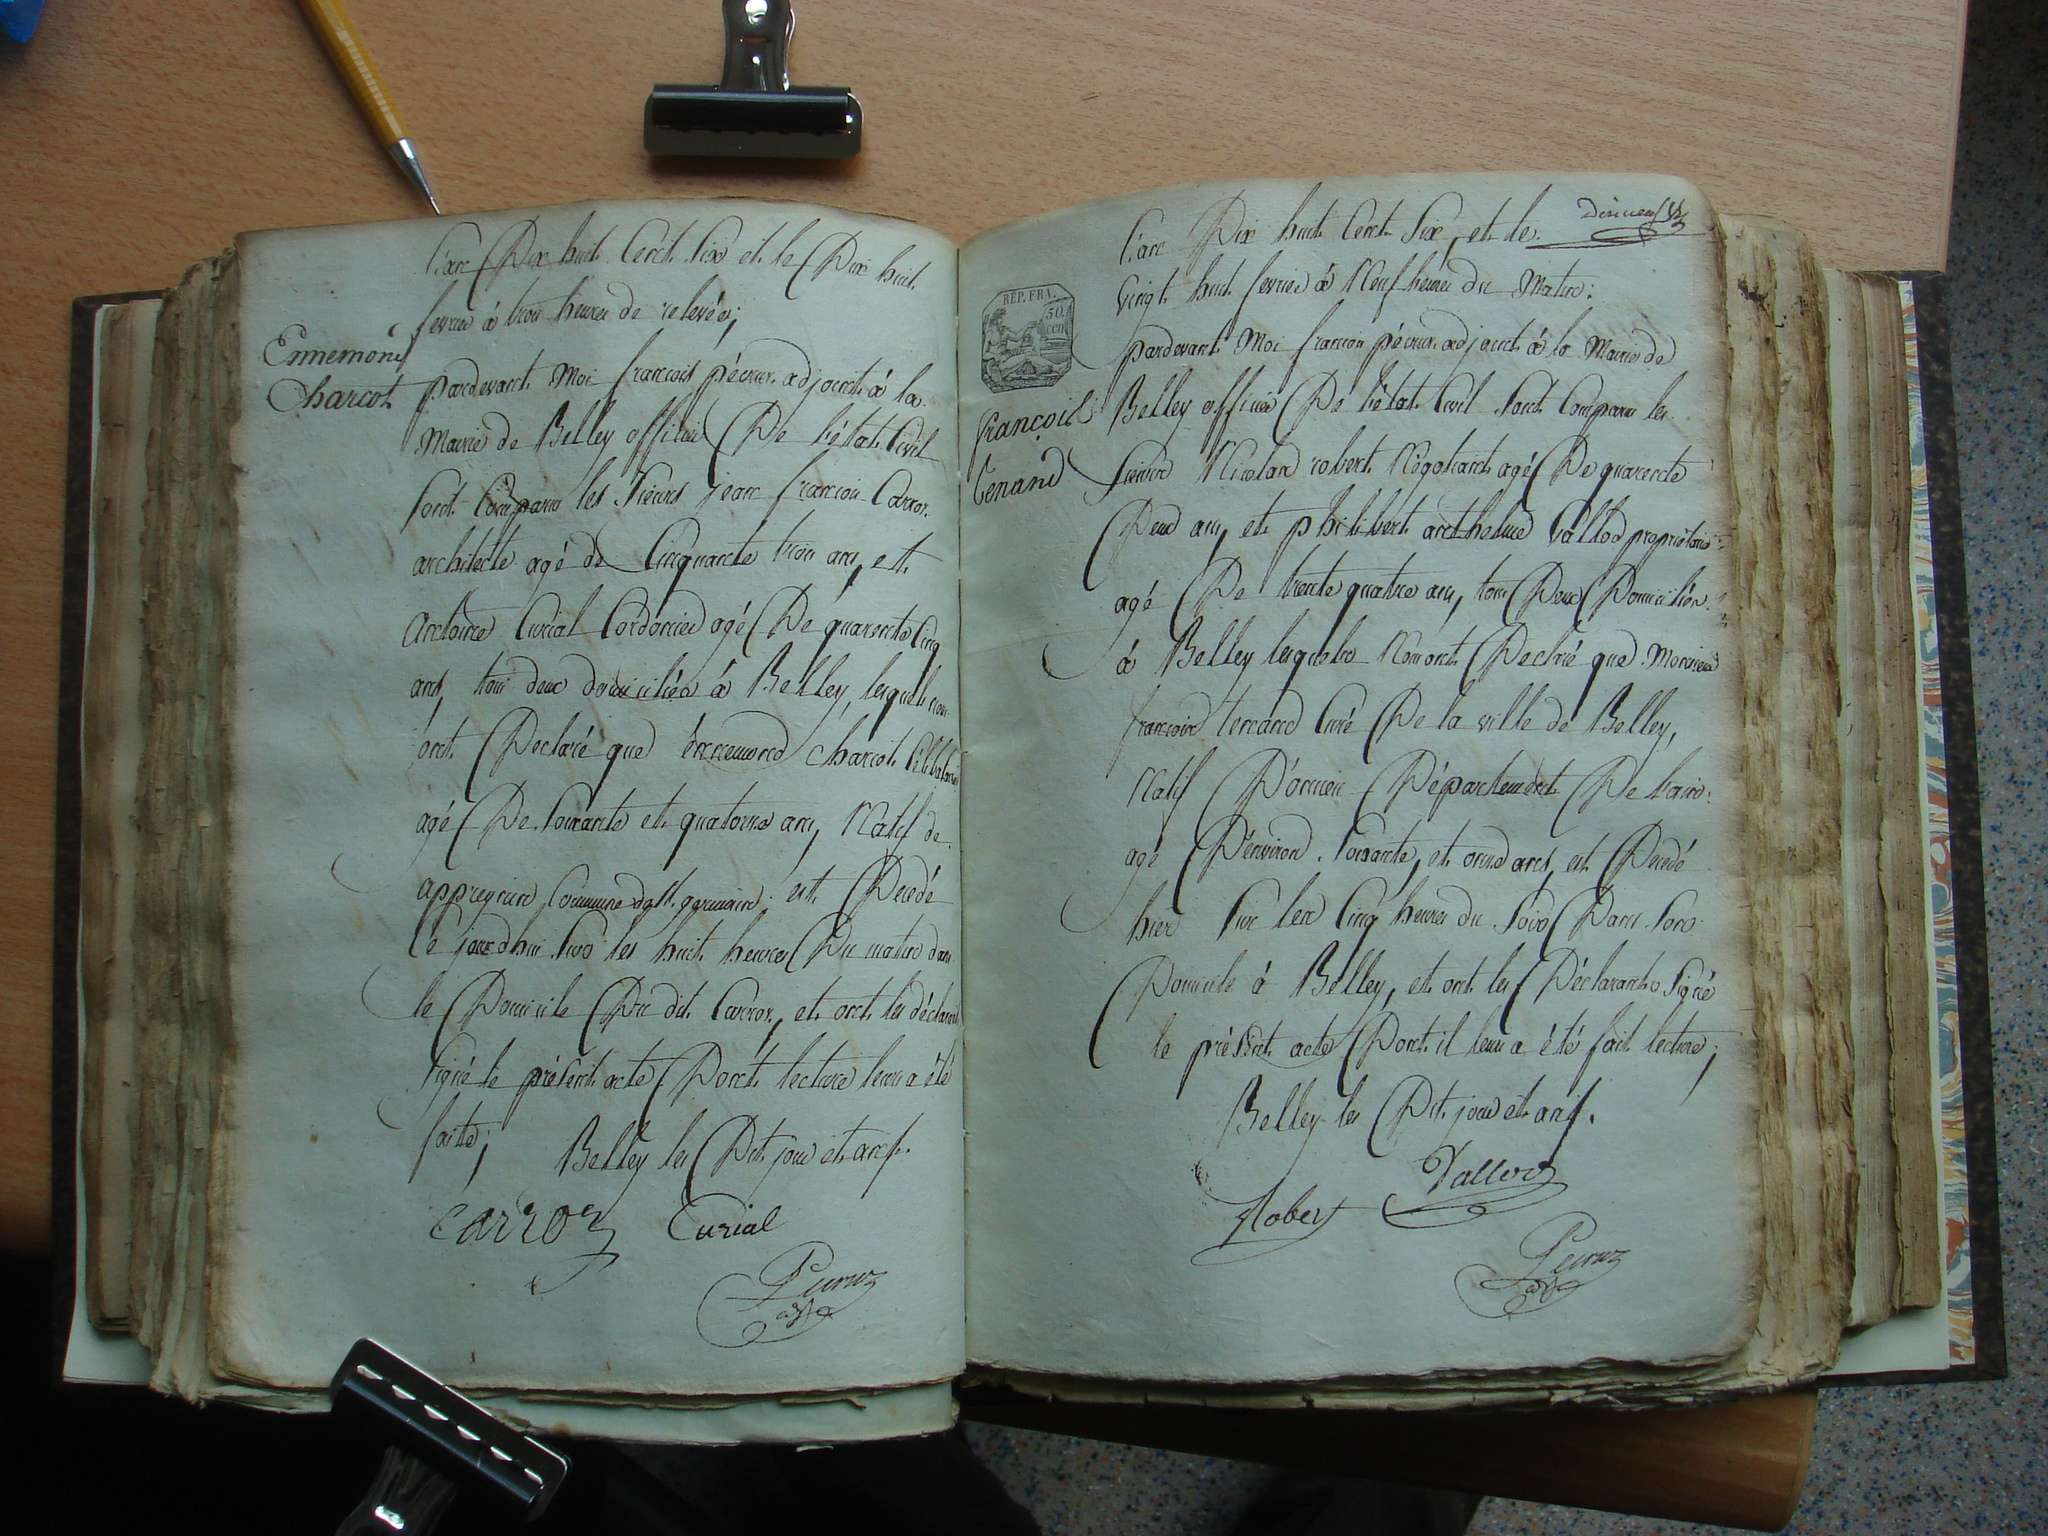 L'an Dix huit Cent Six et le Dix huit
fevrier à trois heures de relevée;
Ennemond
Charcot
pardevant Moi françois pécruz adjoint à la
Mairie de Belley officier De l'état Civil
sont Comparu les Sieurs jean françois Carroz
architecte agé de Cinquante trois ans, et
Antoine Curial Cordonnier agé De quarente Cinq
ans, tous deux domiciliés à Belley, lesquels nous
ont Declaré que énnemond charcot Célibataire
agé De Soixante et quatorze ans, Natif de
appregnin Commune de St. germain; est Décédé
Ce jourd'hui sur les huit heures Du matin dans
le Domicile Du dit Carroz, et ont les déclarants
signé le présent acte Dont lecture leur a été
faite; Belley les Dit jour et an.
Carroz Curial
Pecruz
adj
dixneuf
L'an Dix huit Cent Six, et le
Vingt huit fevrier à Neuf heures du Matin;
REP. FRA.
50.
cen
pardevant Moi françois pécruz adjoint à la Mairie de
François
Tenand
Belley officier De l'état Civil sont Comparu les
Sieurs Nicolas robert Négotiant agé De quarente
Deux ans, et philibert anthelme Vallod propriétaire
agé De trente quatre ans, tous Deux Domiciliés
à Belley lesquels Nous ont Declaré que Monsieur
françois tenand Curé De la ville de Belley,
Natif Département De l'ain
agé D'environ Soixante, et onze ans, est Décédé
hier sur les Cinq heures du Soir Dans son
Domicile à Belley, et ont les Déclarants Signé
le présent acte Dont il leur a été fait lecture;
Belley les Dit jour et an.
Robert Vallod
Pecruz
adj